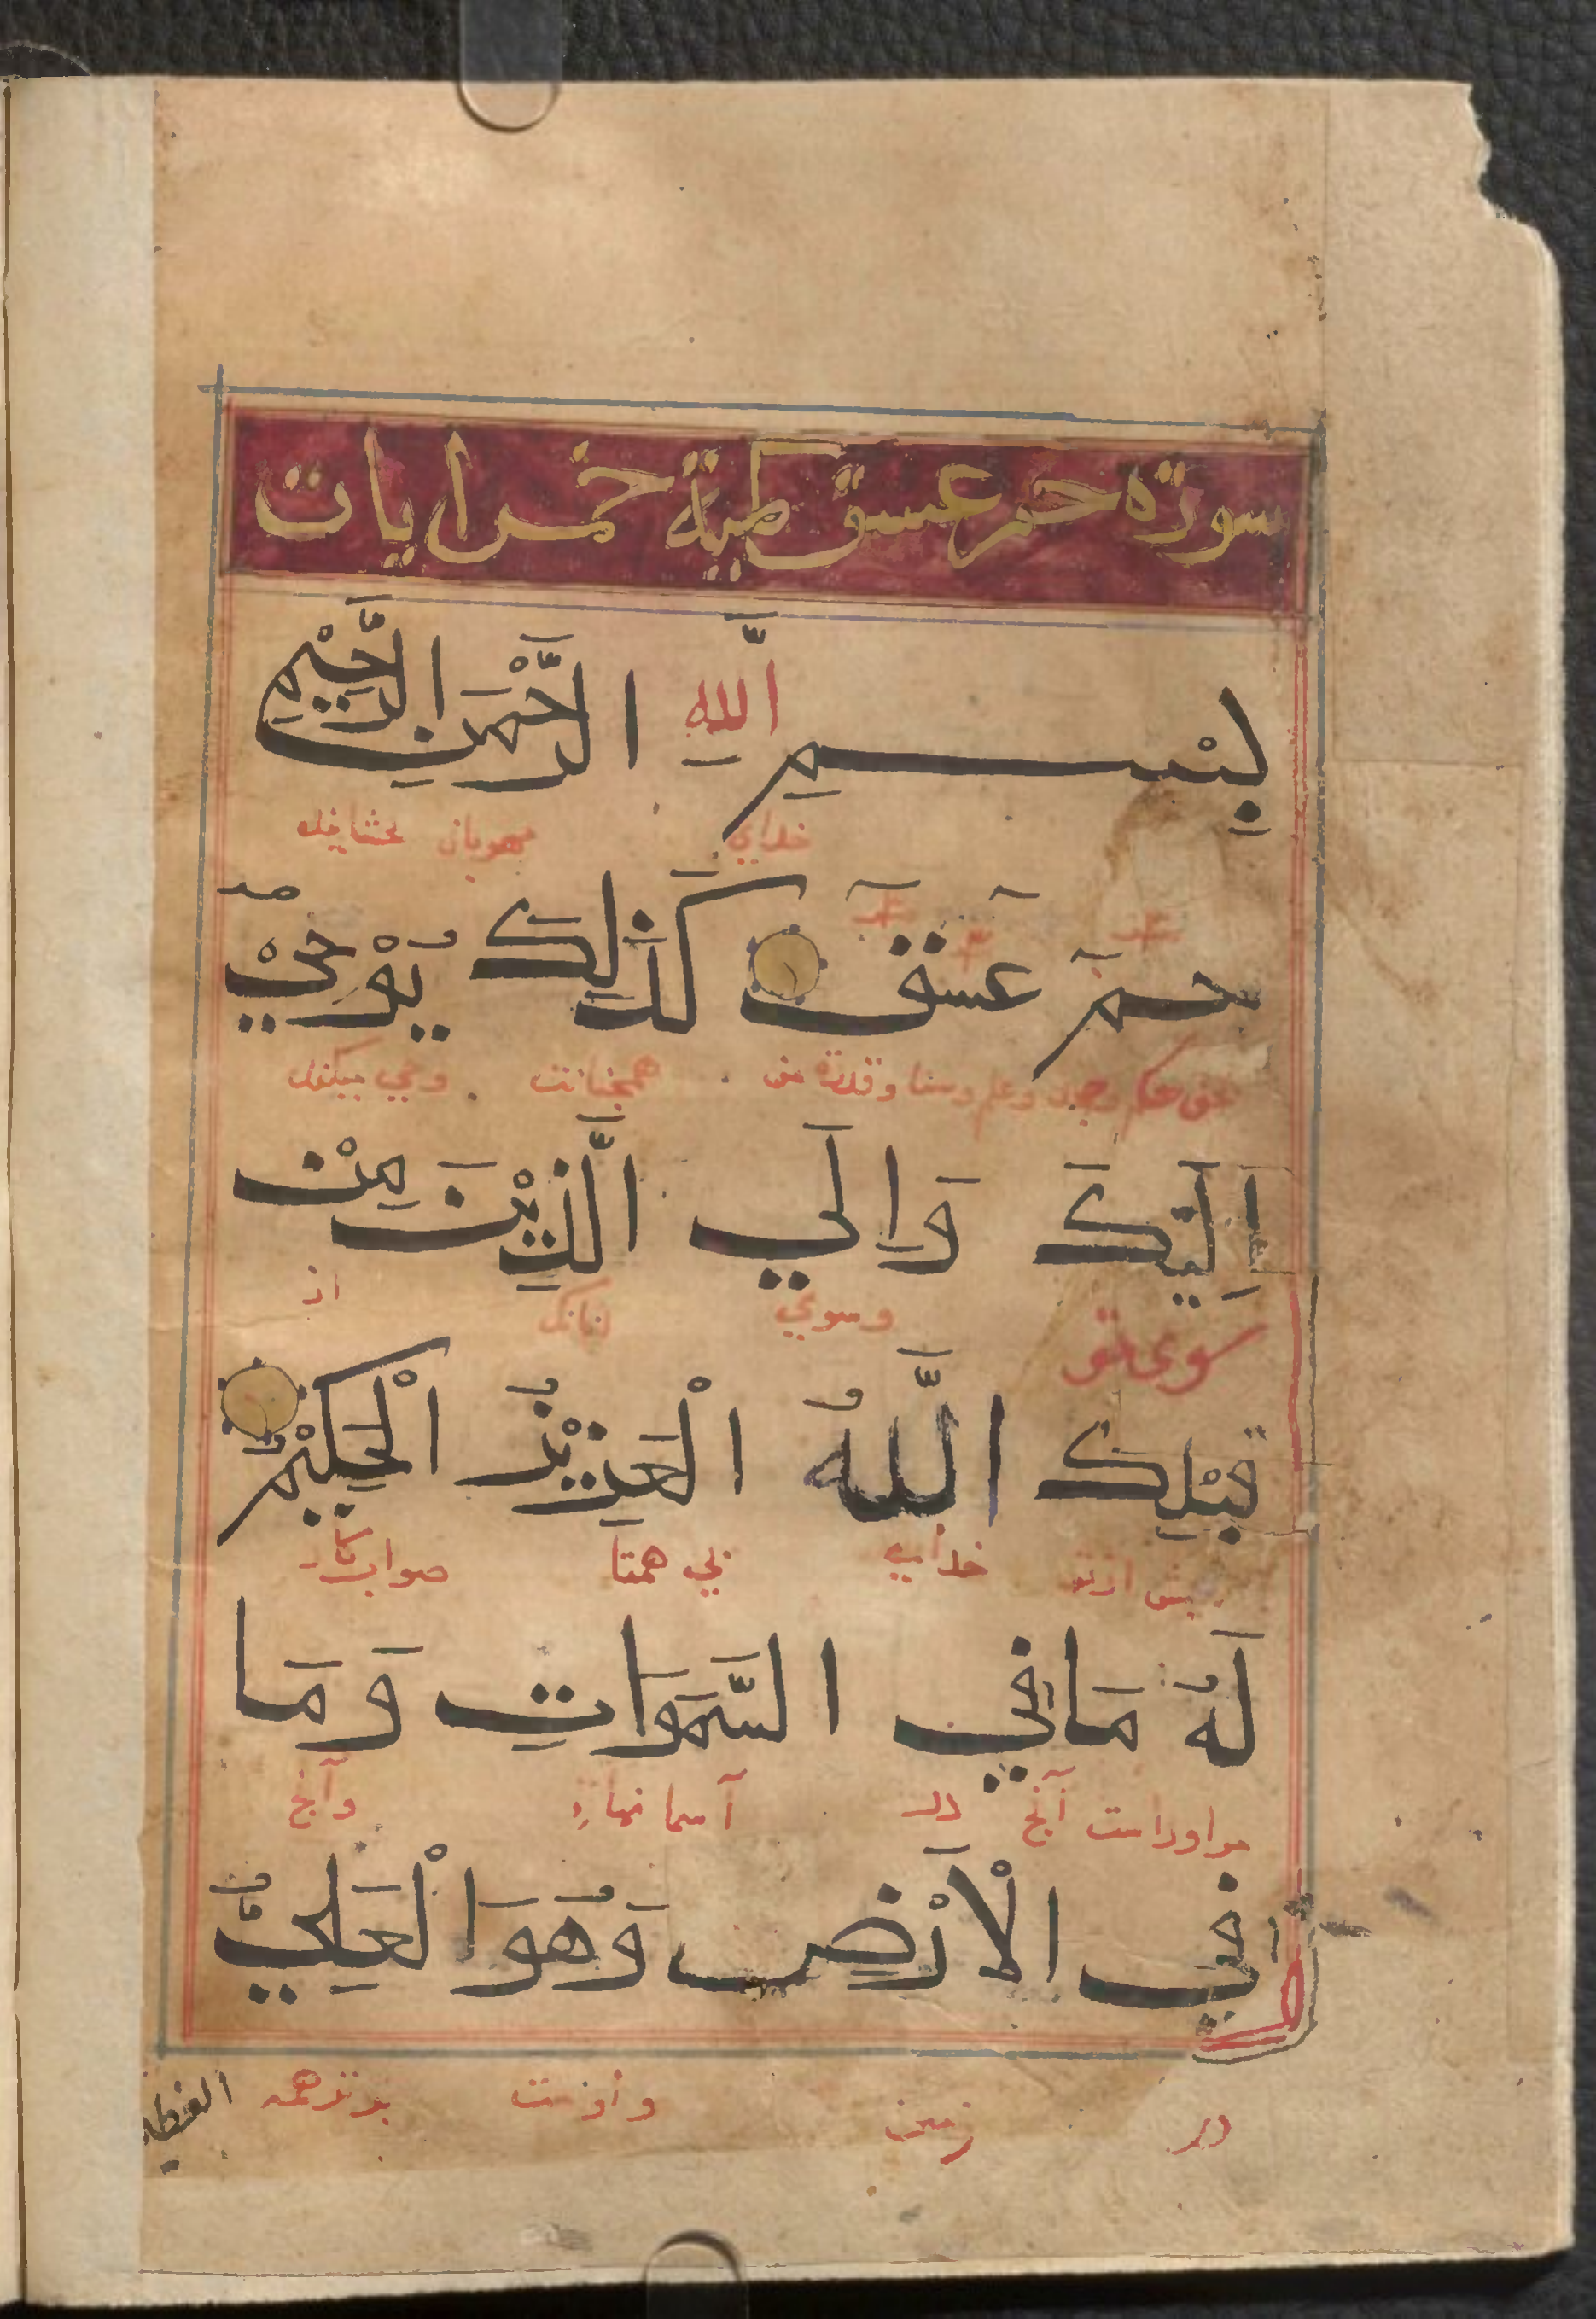 سورة حم عسق مكية خمس ايات
بِسْمِ اللّٰهِ الرَّحْمٰنِ الرَّحِيْمِ
خداي مهربان بخشاینده
حمٓ عٓسٓقٓ كَذَلِكَ يُوْحِيْ
وقدرة من همچنانت وحي ميكند
اِلَيْكَ وَاِلَي الَّذِيْنَ مِنْ
سوي تو وسوي انانك از
قَبْلِكَ اللَّهُ الْعَزِيْزُ الْحَكِيْمُ
پیش از تو خداي بي همتا صواب كار
لَهُ مَا فِي السَّمَوَاتِ وَمَا
مر اوراست آنچ در آسمانها وآنچ
فِي الْاَرْضِ وَهُوَ الْعَلِيُّ
در زمين واوست برتر همه
العظيم